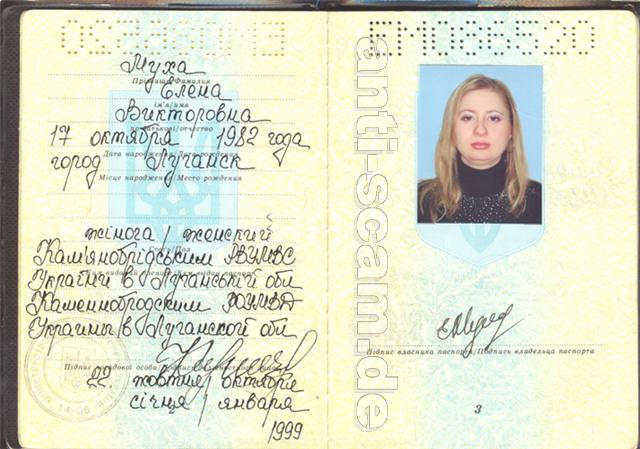 EM086520
Муха
Прізвище/Фамилия
Елена
ім'я/имя
Викторовна
по батькові/отчество
17 октября 1982 года
Дата народження/Дата рождения
город Луганск
Місце народження/Место рождения
жіноча/женский
Стать/Пол
Кам'янобрідським РВУМВС
України в Луганській обл
Ким виданий паспорт/Кем выдан паспорт
Каменнобродским РОУМВД
Украины в Луганской обл
22 жовтня/октября
січня/января
1999
14-06
anti-scam.de
Підпис власника паспорта/Подпись владельца паспорта
3